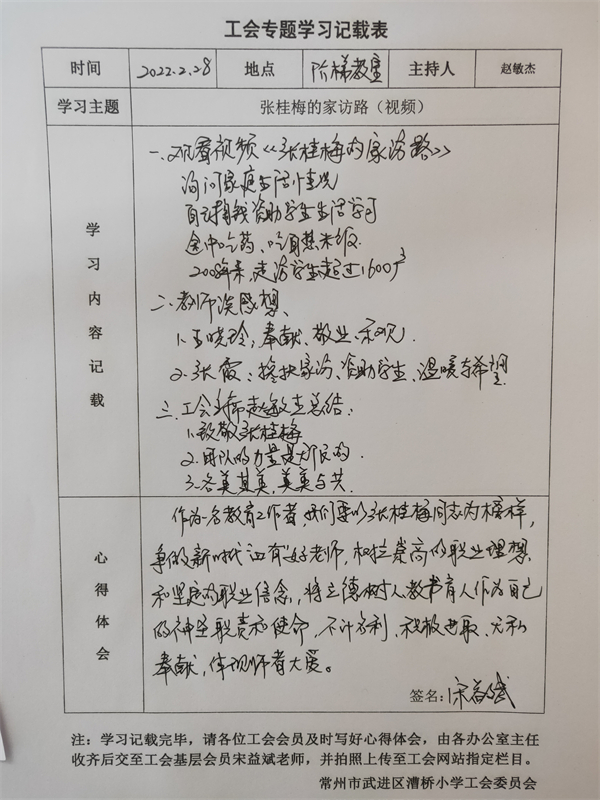 工会专题学习记载表
时间 2022.2.28 地点 阶梯教室 主持人 赵敏杰
学习主题 张桂梅的家访路（视频）
学习内容记载
一、观看视频《张桂梅的家访路》
询问家庭生活情况
自己掏钱资助学生生活学习
途中吃药、吃自热米饭.
2008年来,走访学生超过1600户
二、教师谈感想、
1、王晓玲：奉献、敬业、乐观.
2、张霞：搀扶家访、资助学生、温暖与希望
三、工会主席赵敏杰总结：
1、致敬张桂梅
2、团队的力量是无限的.
3、各美其美,美美与共.
心得体会
作为一名教育工作者,我们要以张桂梅同志为榜样,
争做新时代四有好老师,树立崇高的职业理想
和坚定的职业信念,将立德树人、教书育人作为自己
的神圣职责和使命,不计名利、积极进取、无私
奉献,体现师者大爱。
签名：宋益斌
注：学习记载完毕，请各位工会会员及时写好心得体会，由各办公室主任
收齐后交至工会基层会员宋益斌老师，并拍照上传至工会网站指定栏目。
常州市武进区漕桥小学工会委员会